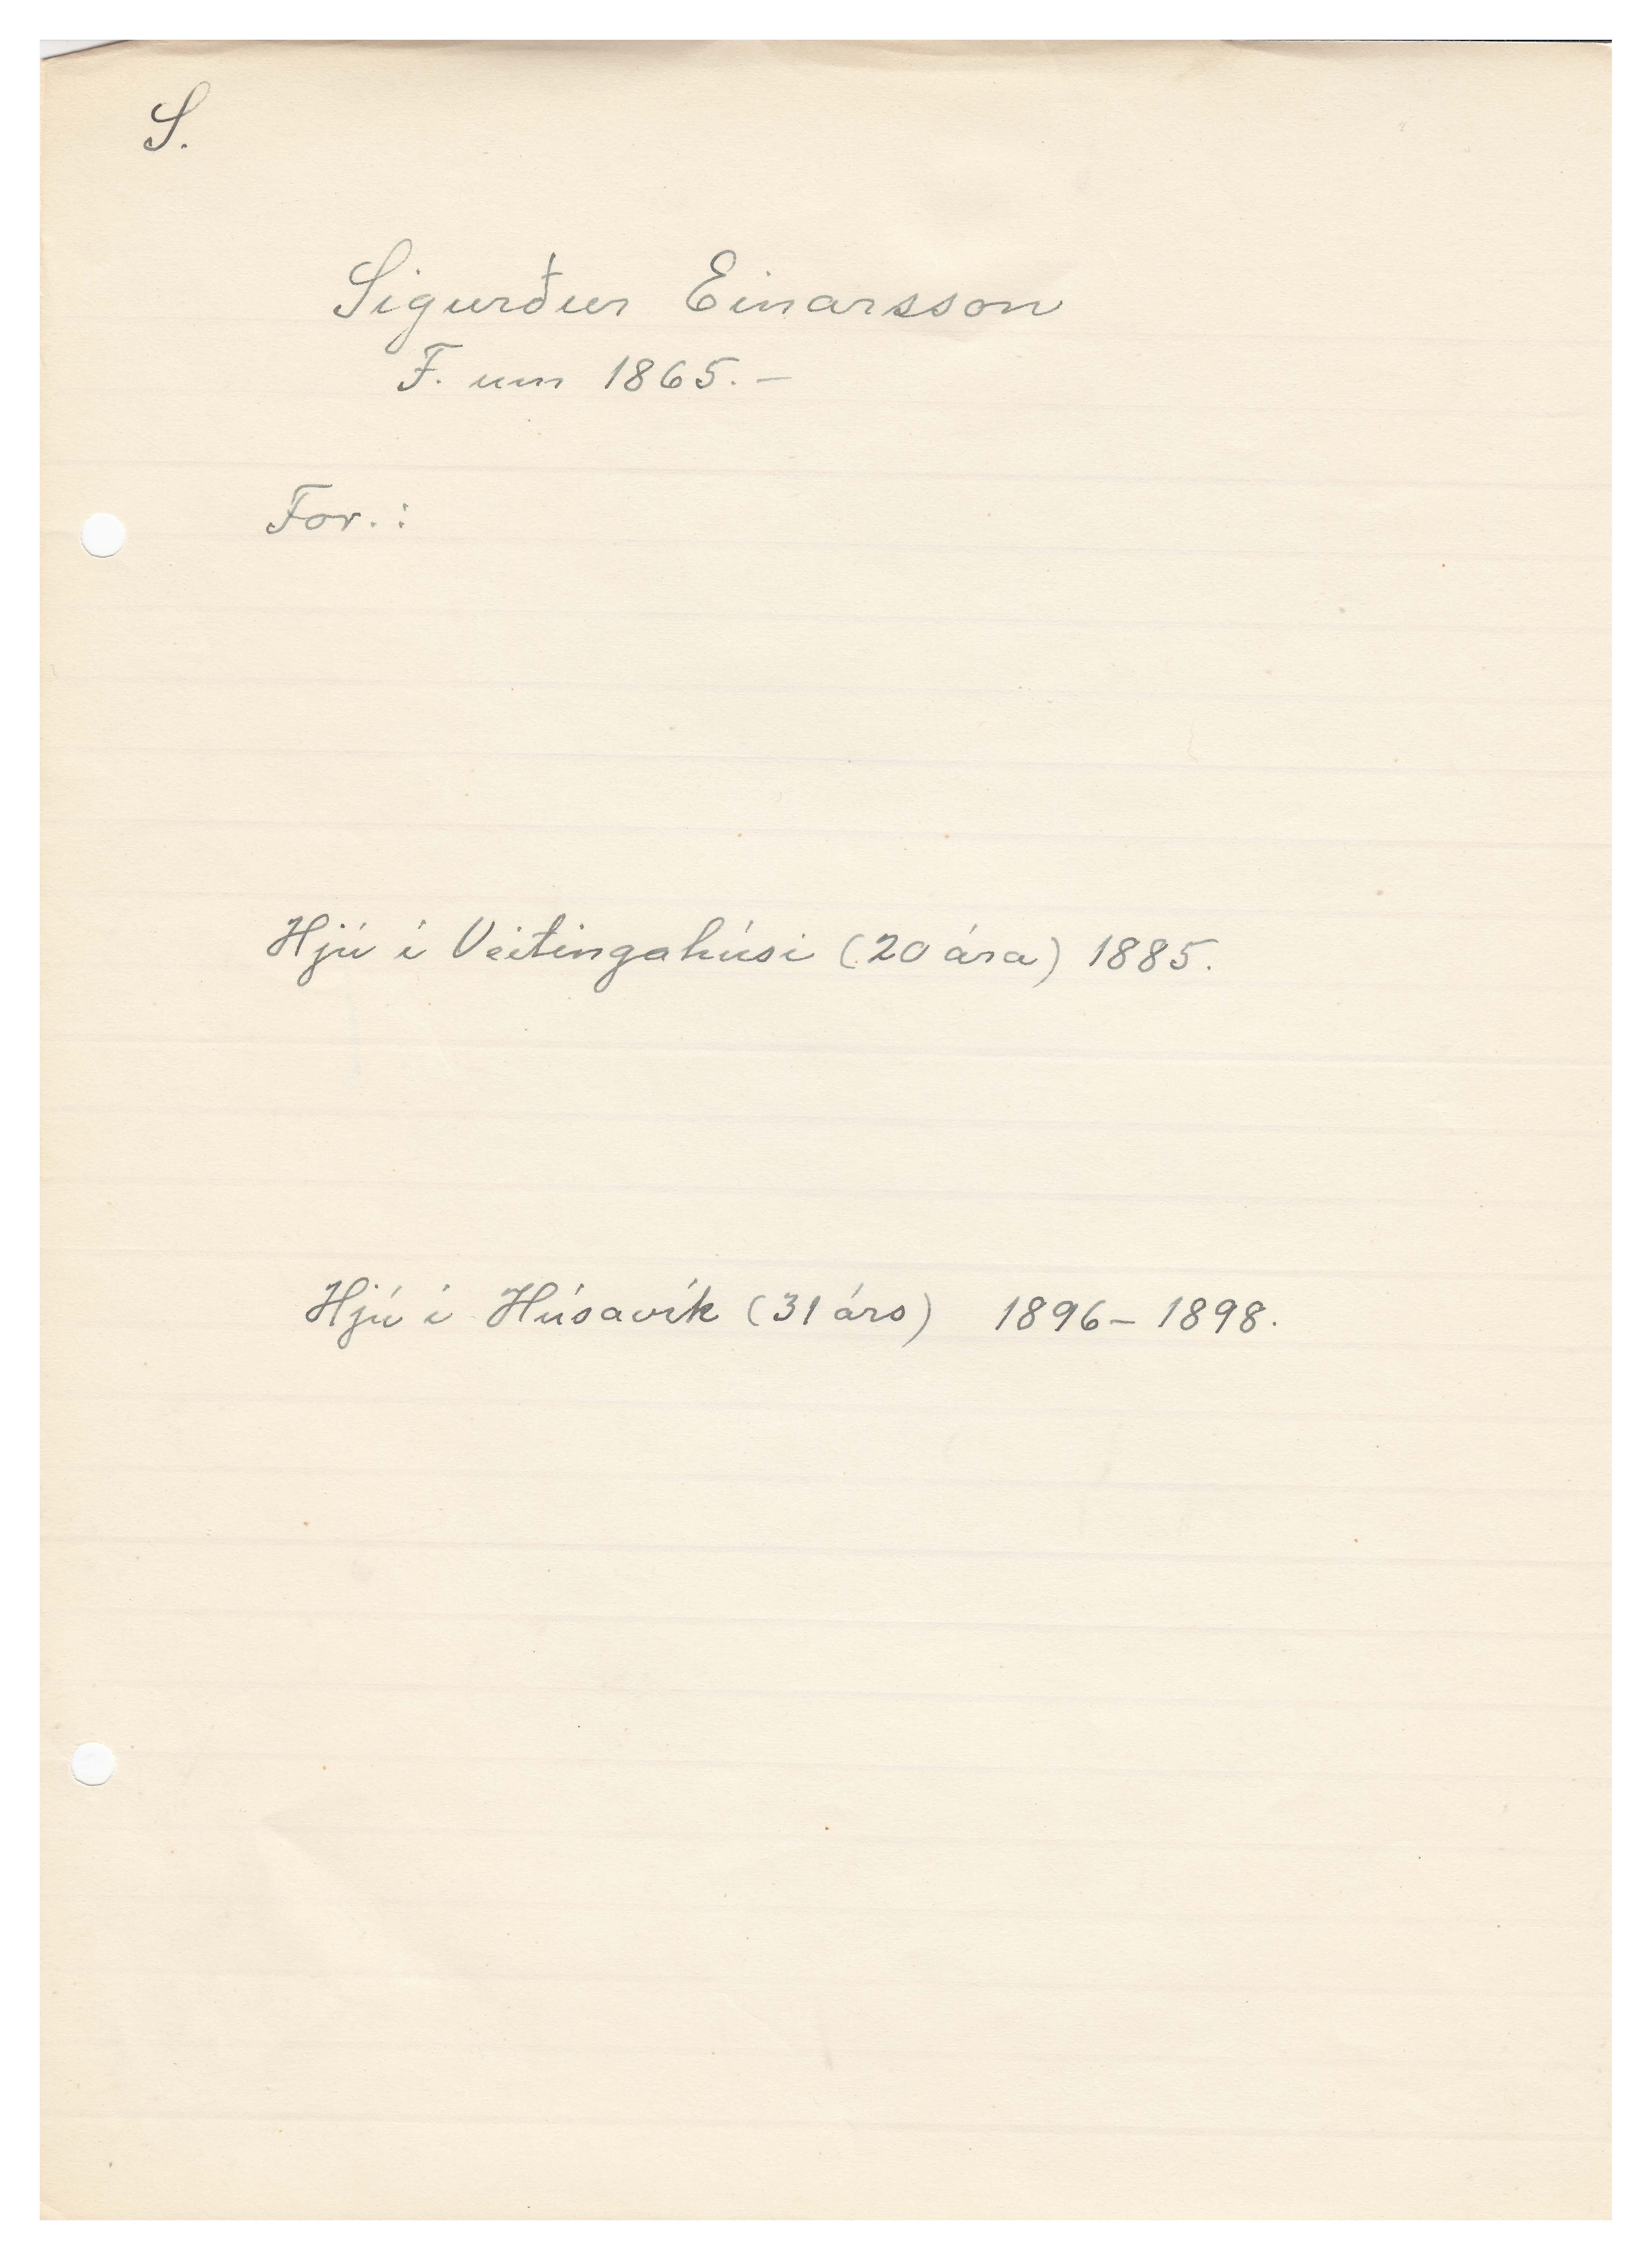 S.
Sigurður Einarsson
F. um 1865. –
For. :
Hjú í Veitingahúsi (20 ára) 1885.
Hjú í Húsavík (31 árs) 1896 – 1898.